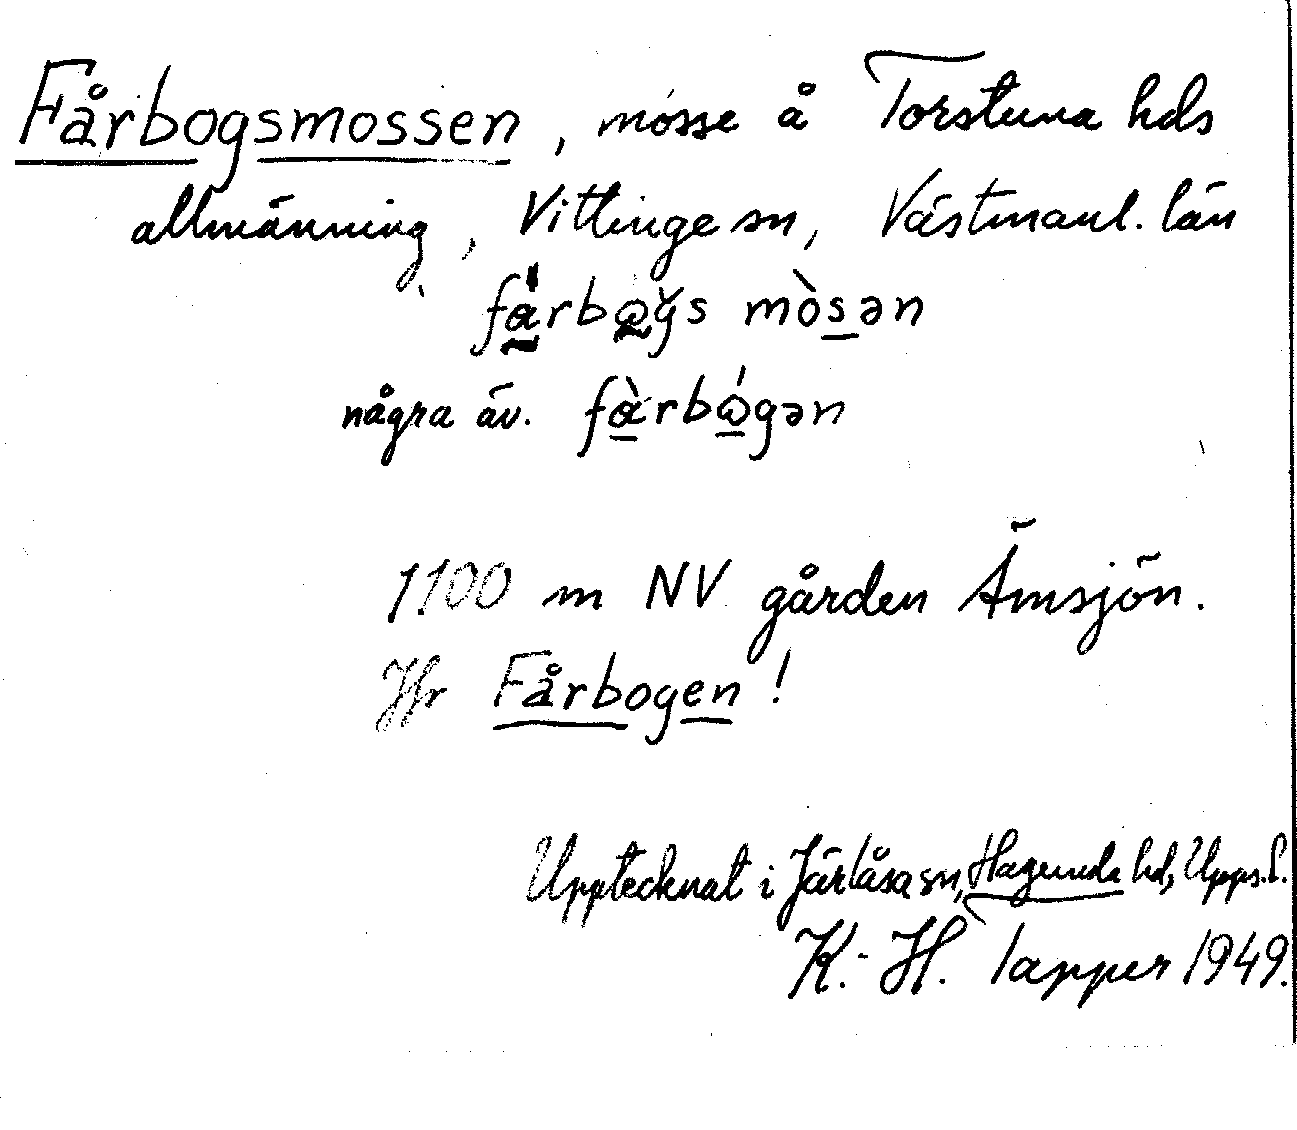 Fårbogsmossen, mosse å Torstuna hds
allmänning, Vittinge sn, Västmanl. län
några äv.
1100 m NV gården Ämsjön.
Jfr Fårbogen!
Upptecknat i Järlåsa sn, Hagunda hd, Upps. l.
K.-H. Tapper 1949.